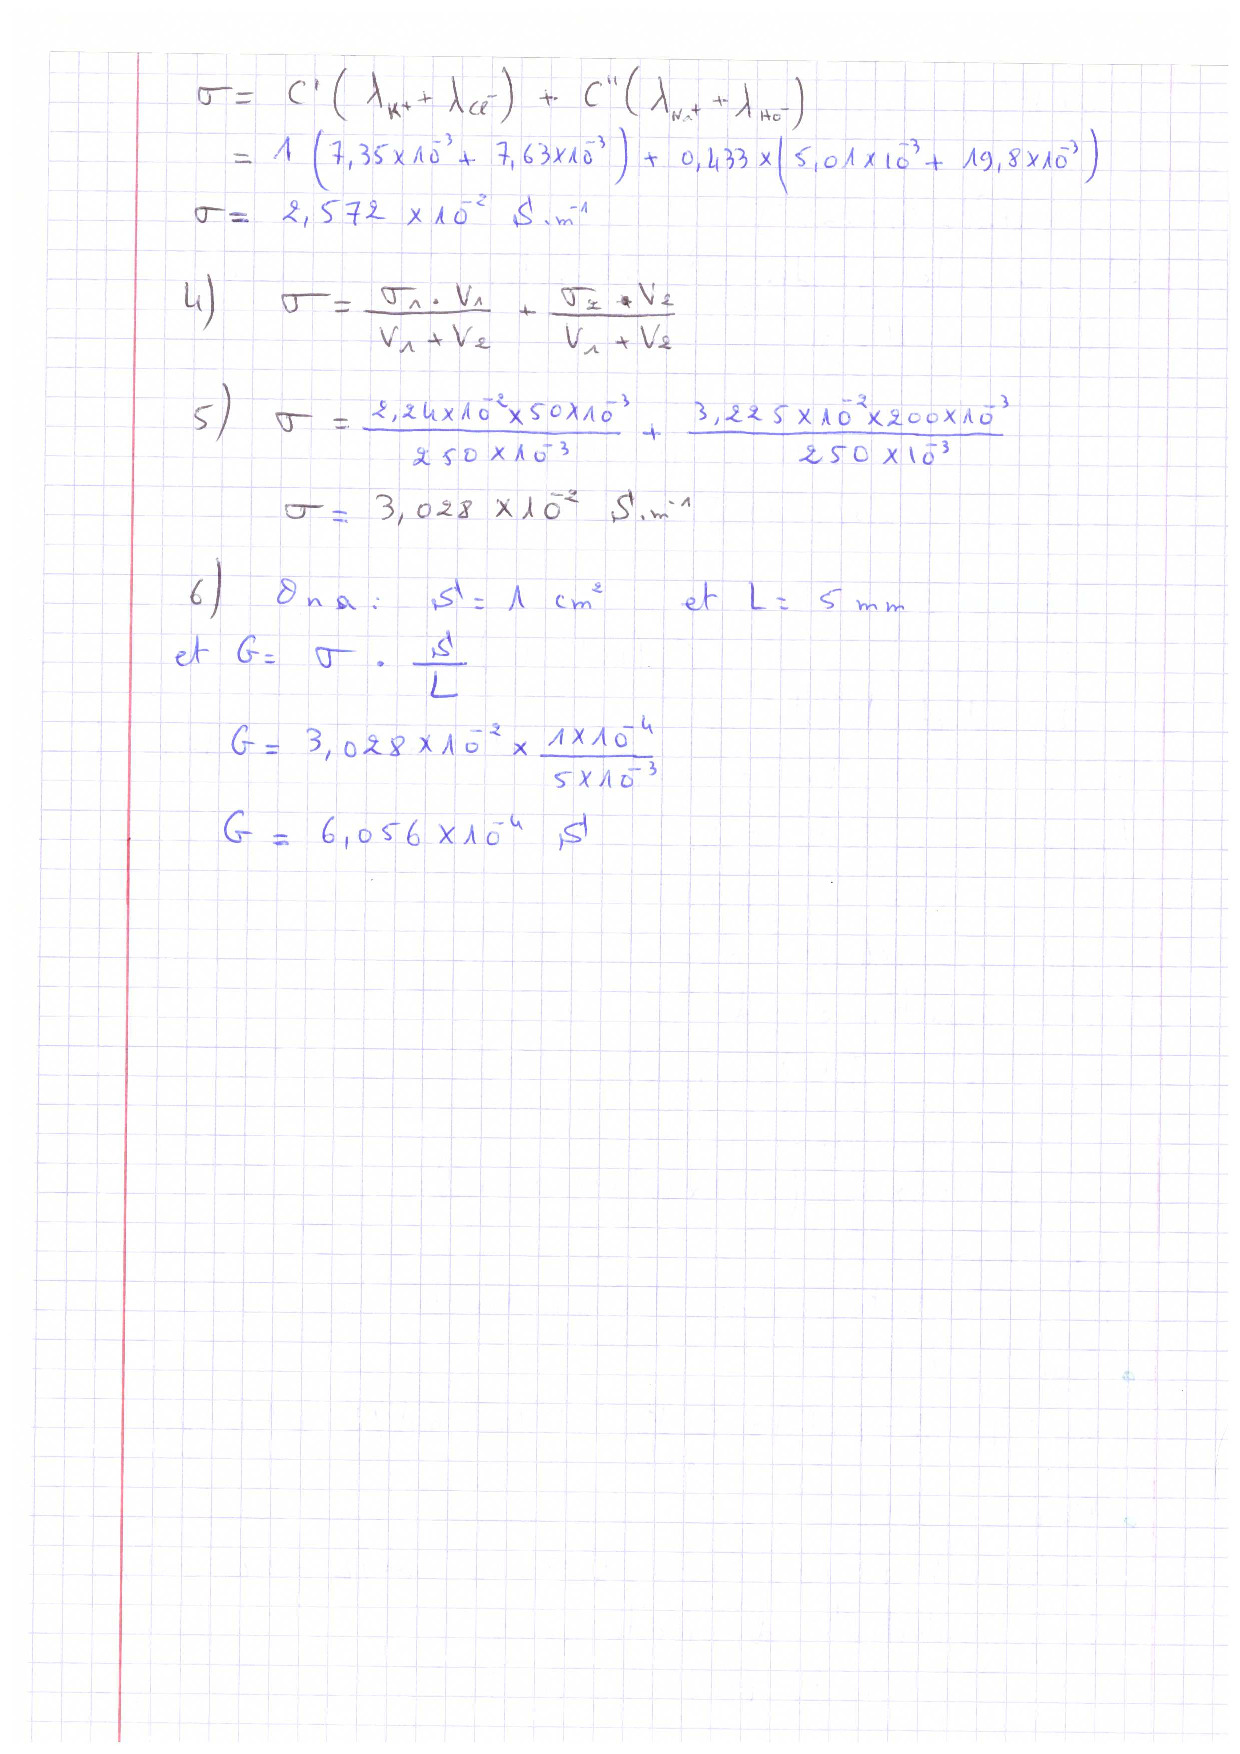 σ = C' ( λK+ + λCl- ) + C'' ( λNa+ + λHO- )
= 1 ( 7,35 × 10^-3 + 7,63 × 10^-3 ) + 0,433 × ( 5,01 × 10^-3 + 19,8 × 10^-3 )
σ = 2,572 × 10^-2 S.m^-1
4) σ = (σ1 . V1)/(V1 + V2) + (σ2 . V2)/(V1 + V2)
5) σ = (2,24 × 10^-2 × 50 × 10^-3)/(250 × 10^-3) + (3,225 × 10^-2 × 200 × 10^-3)/(250 × 10^-3)
σ = 3,028 × 10^-2 S.m^-1
6) On a : S = 1 cm² et L = 5 mm
et G = σ . S/L
G = 3,028 × 10^-2 × (1 × 10^-4)/(5 × 10^-3)
G = 6,056 × 10^-4 S